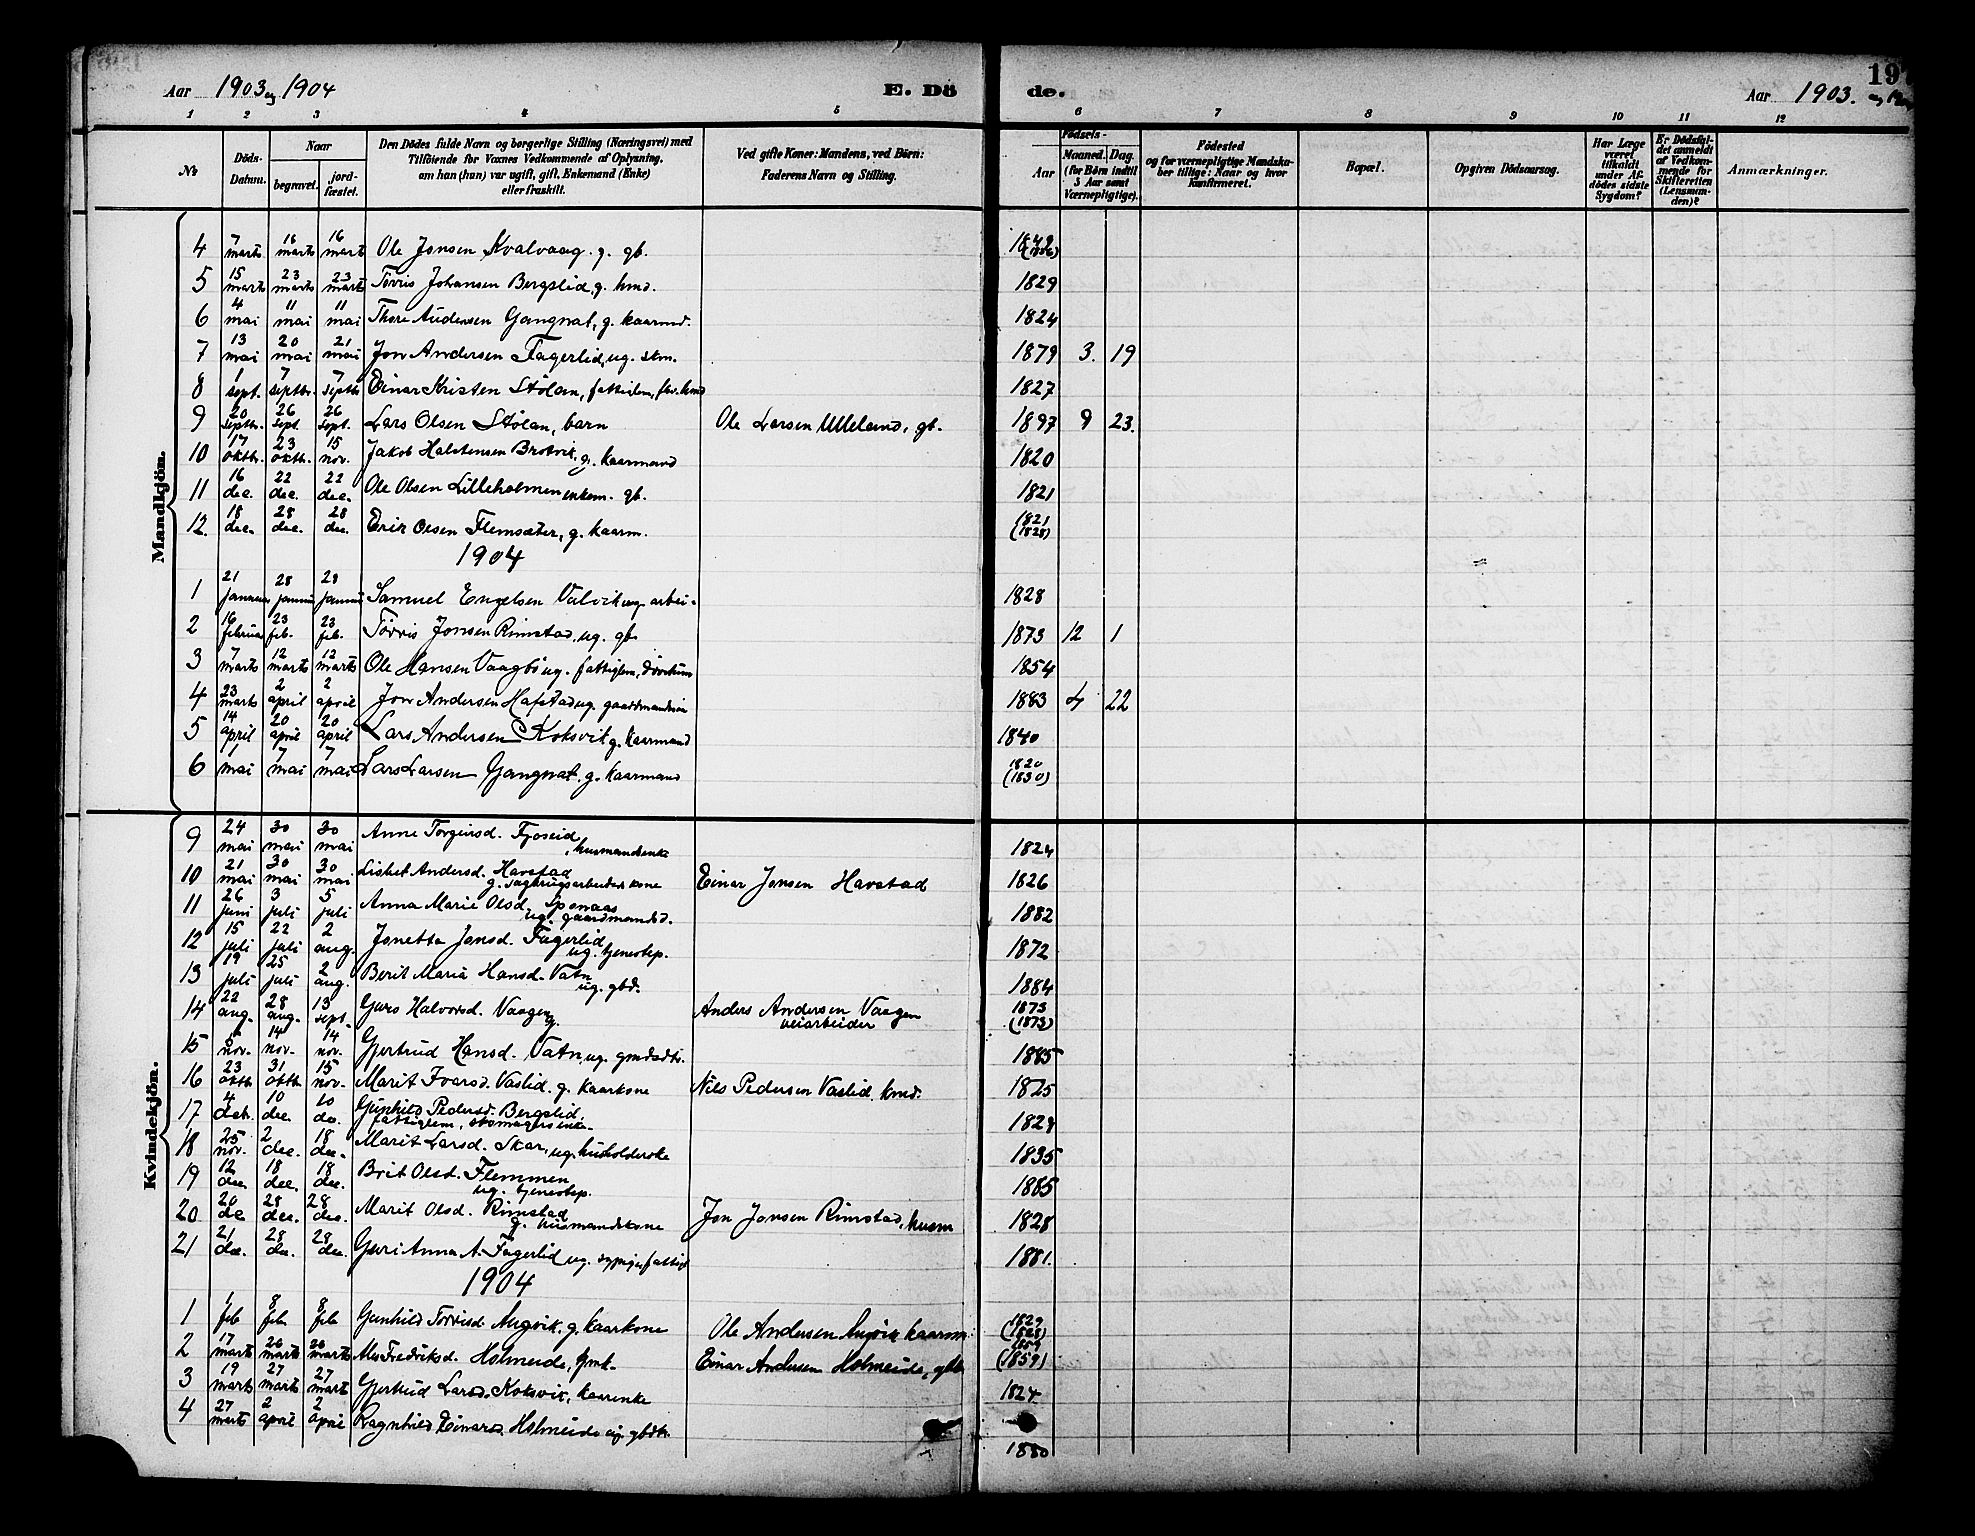 Aar 1903 og 1904 E. Dö de. Aar 1903. 197
1 2 3 4 5 6 7 8 9 10 11 12
№
Döds-Datum.
Naar
begravet. jord-fæstet.
Den Dödes fulde Navn og borgerlige Stilling (Næringsvei) med
Tilföiende for Voxnes Vedkommende af Oplysning,
om han (hun) var ugift, gift, Enkemand (Enke)
eller fraskilt.
Ved gifte Koner: Mandens, ved Börn:
Faderens Navn og Stilling.
Födsels-
Aar Maaned. Dag.
(for Börn indtil
5 Aar samt
Værnepligtige).
Födested
og for værnepligtige Mandska-
ber tillige: Naar og hvor
konfirmeret.
Bopæl.
Opgiven Dödsaarsag.
Har Læge
været
tilkaldt
under Af-
dödes sidste
Sygdom?
Er Dödsfal-
det anmeldt
af Vedkom-
mende for
Skifteretten
(Lensman-
den)?
Anmærkninger.
Mandkjön.
4 7 marts 16 marts 16 mart Ole Jonsen Kvalvaag. g. gb. 1849 (1856)
5 15 marts 23 marts 23 marts Torris Johansen Bergslid, g. hmd. 1829
6 4 mai 11 mai 11 mai Thore Audensen Gangnat, g. kaarmd. 1824
7 13 mai 20 mai 21 mai Jon Andersen Fagerlid, ug. søm. 1879 3. 19
8 1 sept. 7 septbr. 7 septbr Einar Kristen Stølan, fattiglem, fhv. hmd 1827
9 20 septbr. 26 sept. 26 sept. Lars Olsen Stølan, barn Ole Larsen Ulleland, gb. 1897 9 23.
10 17 oktbr. 23 oktb. 15 nov. Jakob Halstensen Brotvik, g. kaarmand 1820
11 16 dec. 22 dec. 22 dec. Ole Olsen Lilleholmen enkem. gb. 1821
12. 18 dec. 28 dec. 28 dec. Erik Olsen Flemsæter, g. kaarm. 1821 (1828)
1904
1 21 januar 28 januar 28 januar Samuel Engelsen Valvik ug. arbei. 1828
2 16 februar 23 feb. 23 feb. Torris Jonsen Rimstad, ug. gb. 1873 12 1
3 7 marts 12 marts 12 marts Ole Hansen Vaagbö ug. fattiglem, døvstum 1854
4 23 marts 2 april 2 april Jon Andersen Hafstad ug. gaardmandssøn 1883 4 22
5 14 april 20 april 20 april Lars Andersen Koksvik g. kaarmand 1840
6 1 mai 7 mai 7 mai Lars Larsen Gangnat. g. kaarmand 1820 (1830)
Kvindekjön.
9 24 mai 30 mai 30 mai Anne Torgeirsd. Fjoseid, husmandsenke 1824
10 21 mai 30 mai 30 mai Lisbet Andersd. Havstad g. sagbrugsarbeiders kone Einar Jonsen Havstad 1826
11 26 juni 3 juli 5 juli Anna Marie Olsd. Sponaas ug. gaardmandsd. 1882
12 15 juli 22 juli 2 aug. Jonetta Jonsd. Fagerlid ug. tjenestep. 1872
13 19 juli 25 juli 2 aug. Berit Maria Hansd. Vatn ug. gbd. 1884
14 22 aug. 28 aug. 13 sept. Guro Halvorsd. Vaagen g. Anders Andersen Vaagen veiarbeider 1873 (1873)
15 nov. 14 nov. 14 nov. Gjertrud Hansd. Vatn, ug. gmdsdtr. 1885
16 23 oktb 31 oktb. 15 nov. Marit Ivarsd. Vaslid. g. kaarkone Nils Pedersen Vaslid. hmd. 1825
17 4 dec. 10 dec. 10 dec. Gunhild Pedersd. Bergslid, fattiglem, skomagersenke. 1829
18 25 nov. 2 dec. 18 dec. Marit Larsd. Skar, ug. husholderske 1835
19 12 dec. 18 dec. 18 dec. Brit Olsd. Flemmen ug. tjenestep. 1885
20 20 de 28 dec. 28 dec. Marit Olsd. Rimstad g. husmandskone Jon Jonsen Rimstad, husm 1828
21 21 dec. 28 dec. 28 dec. Guri Anna A. Fagerlid ug. sypige, fattigl 1881.
1904
1 1 feb 8 feb 8 feb Gunhild Torrisd Augvik. g. kaarkone Ole Andersen Augvik kaarm. 1829 (1828)
2 17 marts 26 marts 26 marts Fredriksd. Holmeide, gmk. Einar Andersen Holmeide, gbr 1859 (1859)
3 19 marts 27 marts 27 marts Gjertrud Larsd. Koksvik, kaarenke 1824
4 27 marts 2 april 2 april Ragnhild Einarsd. Holmeide ug. gbdtr. 1880